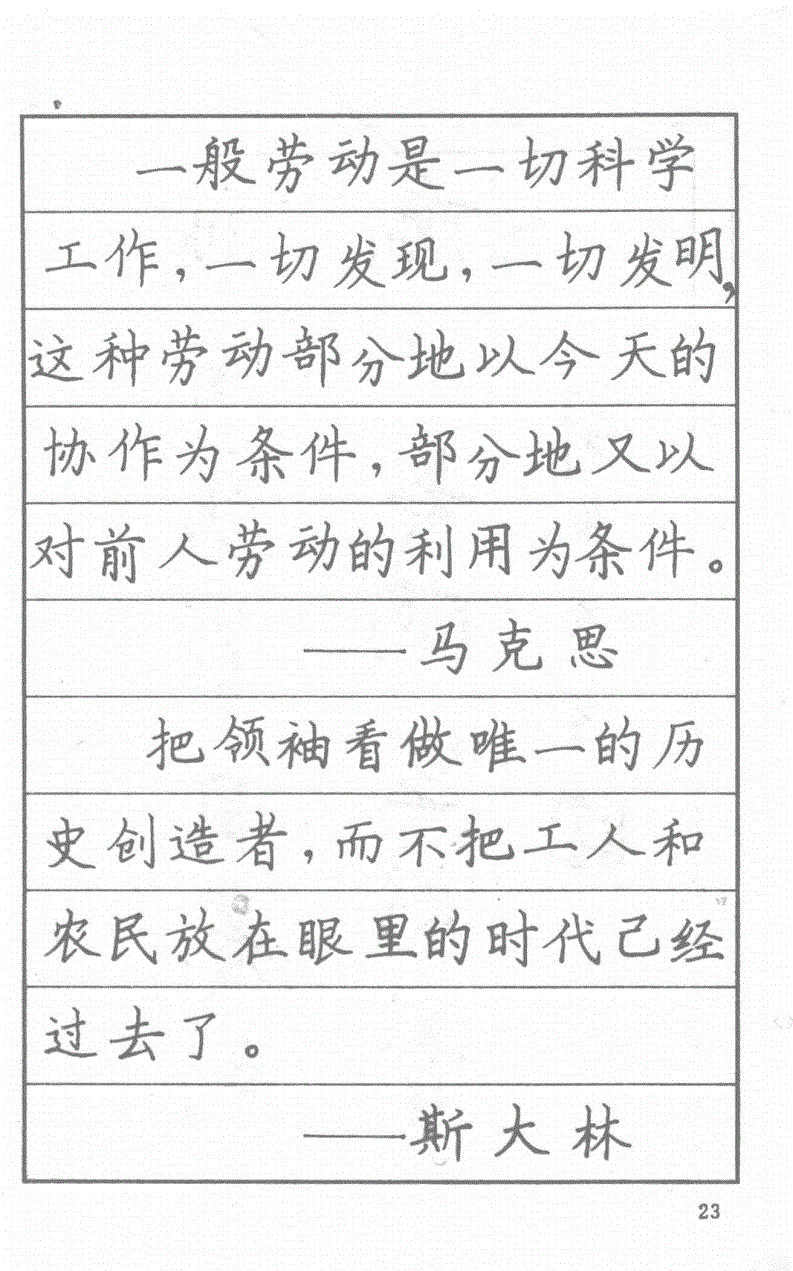 一般劳动是一切科学
工作,一切发现,一切发明,
这种劳动部分地以今天的
协作为条件,部分地又以
对前人劳动的利用为条件。
——马克思
把领袖看做唯一的历
史创造者,而不把工人和
农民放在眼里的时代已经
过去了。
——斯大林
23